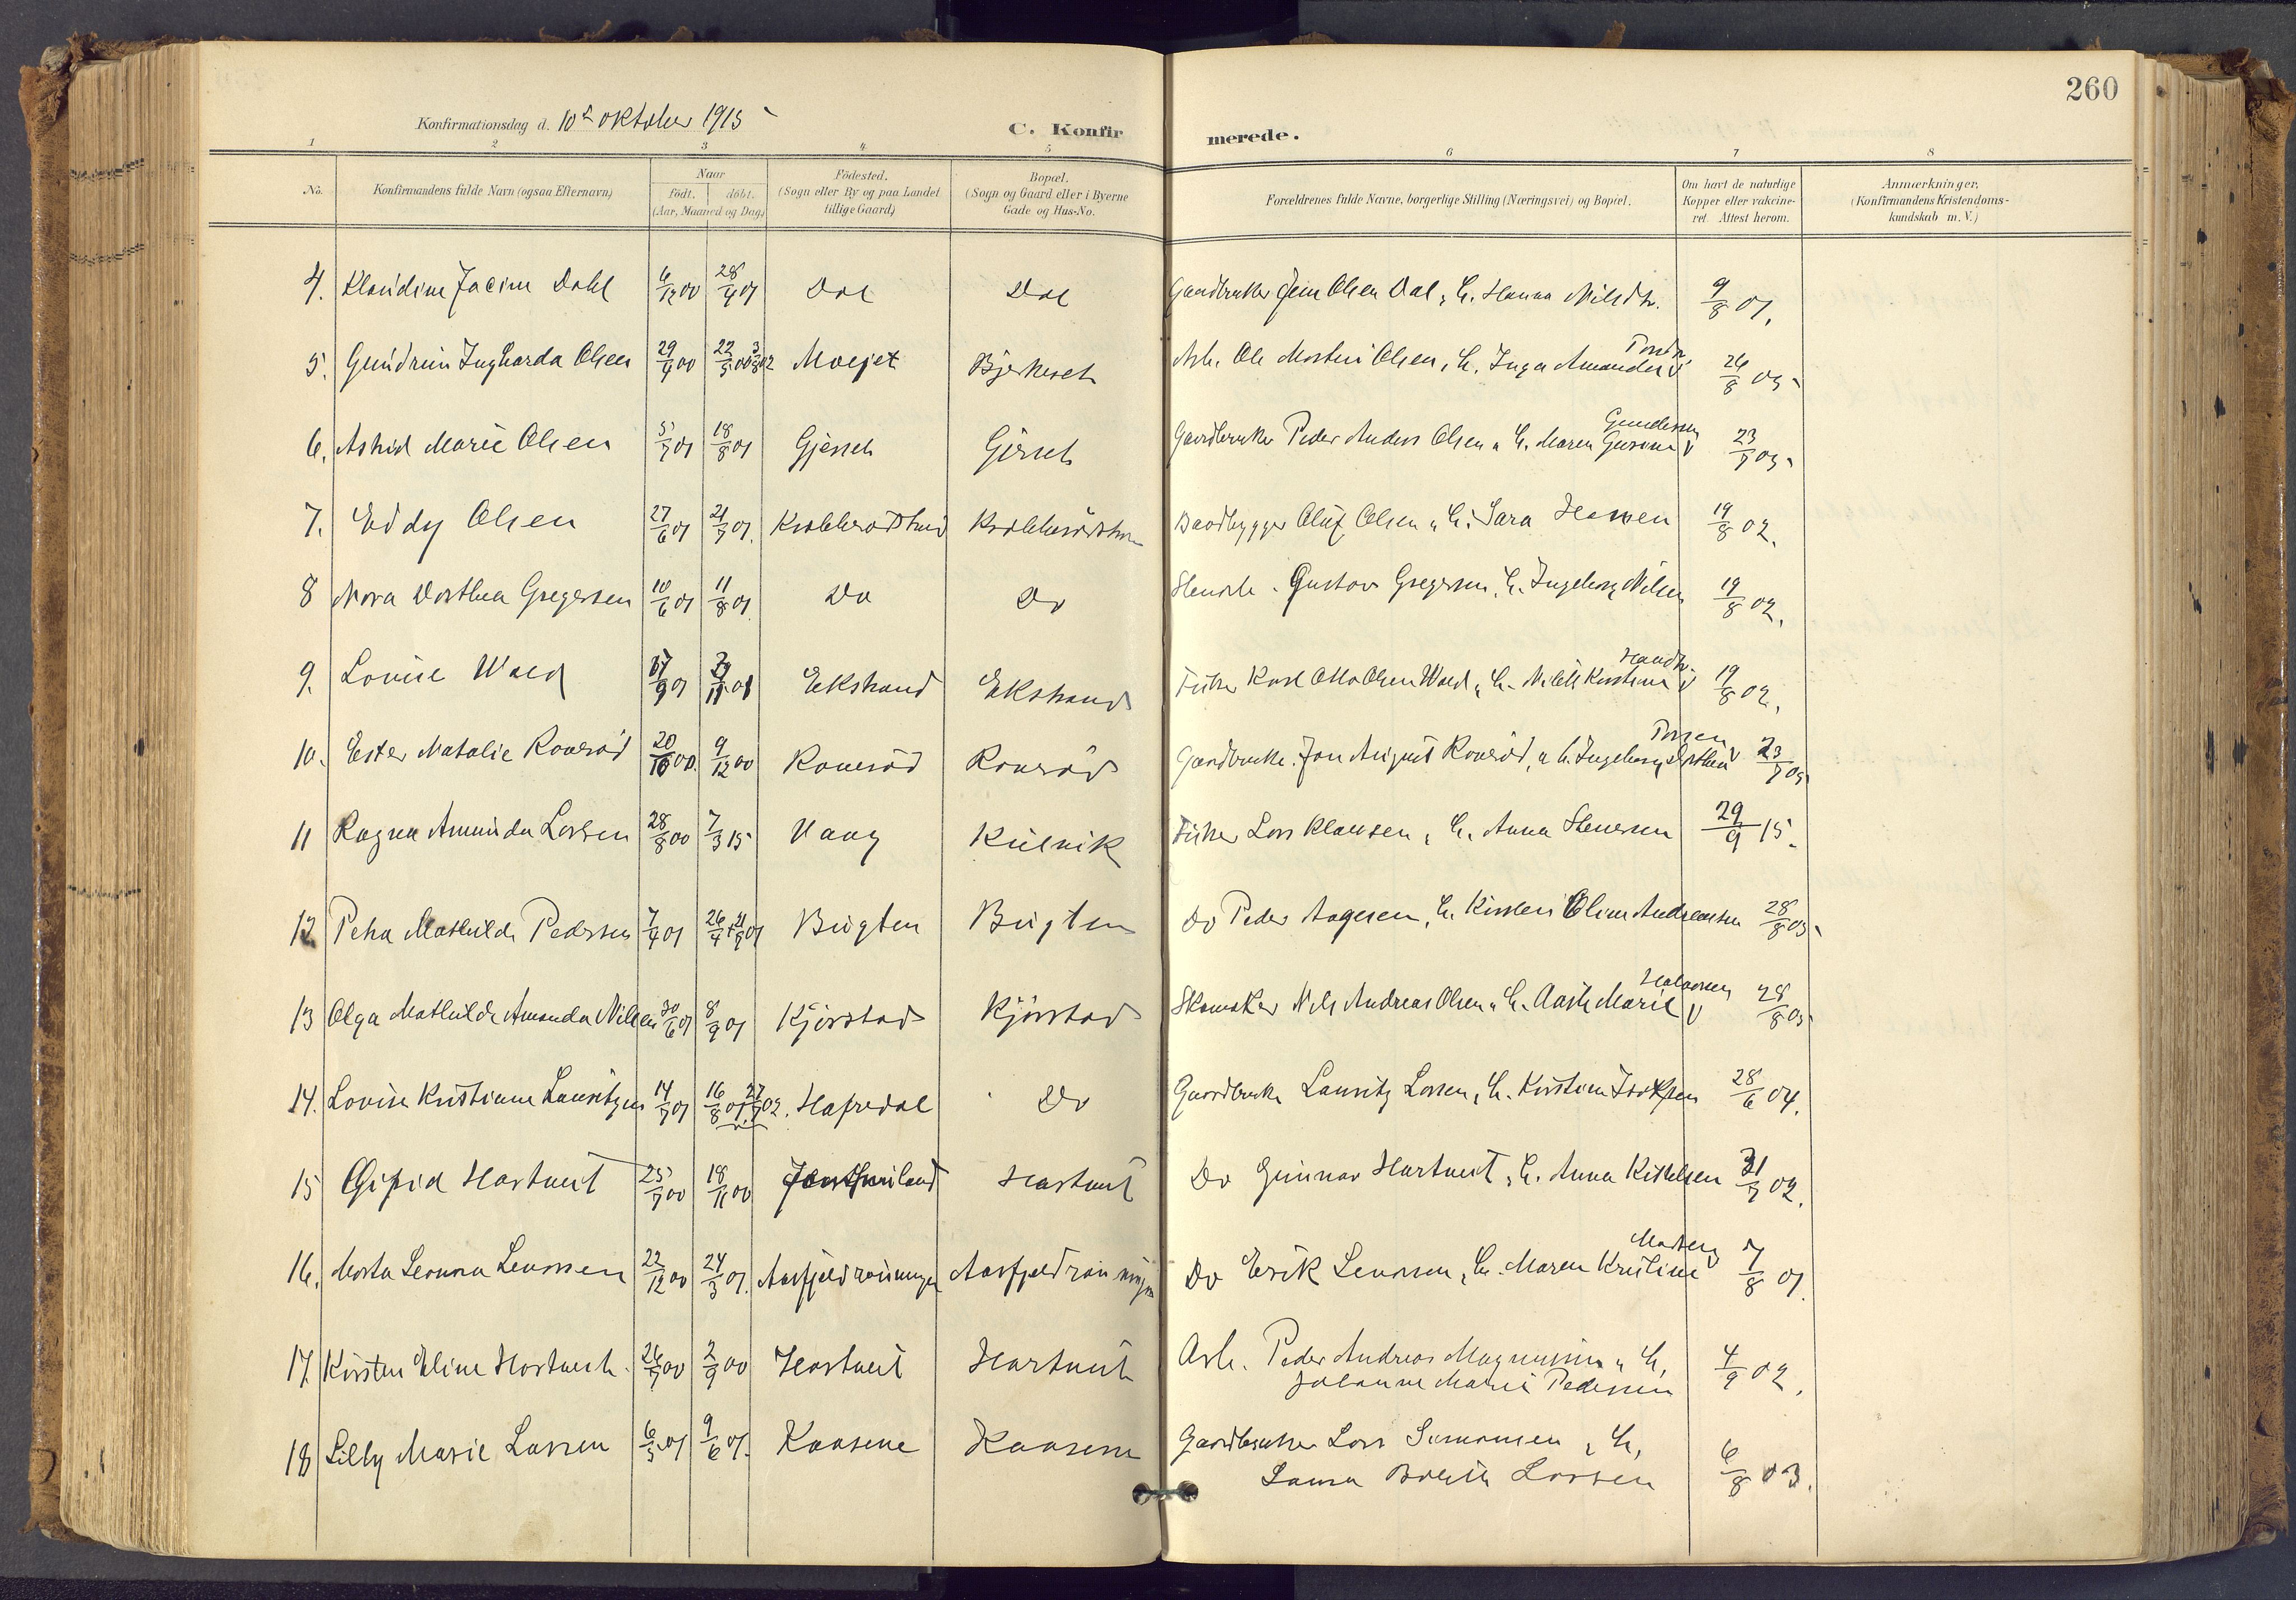 260
Konfirmationsdag d. 10de oktober 1915
C. Konfirmerede.
1 2 3 4 5 6 7 8
No. Konfirmandens fulde Navn (ogsaa Efternavn) Naar født. døbt. (Aar, Maaned og Dag) Födested. (Sogn eller By og paa Landet tillige Gaard) Bopæl. (Sogn og Gaard eller i Byerne Gade og Hus-No. Forældrenes fulde Navne, borgerlige Stilling (Næringsvei) og Bopæl. Om havt de naturlige Kopper eller vakcineret. Attest herom. Anmærkninger, (Konfirmandens Kristendomskundskab m. V.)
4. Klaudine Jacine Dahl 6/12 00 28/4 01 Dal Dal Gaardbruker Jens Olsen Dal, h. Hanna Nilsdtr. 9/8 01.
5. Gudrun Ingharda Olsen 29/4 00 22/5 00 Moejet Arb. Ole Morten Olsen, h. Inga Amanda 26/8 05
6. Astrid Marie Olsen 5/7 01 18/8 01 Gaardbruker Peder Anders Olsen, h. Maren Gundersen 23/7 05
7. Eddy Olsen 27/6 01 21/7 01. Baadbygger Oluf Olsen, h. Sara 19/8 02.
8 Nora Dorthea Gregersen 10/6 01 11/8 01. Do Do Gustav Gregersen, h. Ingeborg Nilsen 19/8 02.
9. Louise Wold Ekstrand Ekstrand Fisker Karl Otto Olsen Wold, h. Kirstine 19/8 02.
10. Ester Natalie Roveröd 20/10 00. 9/12 00 Roveröd Roveröd Gaardbruker Jon August Roveröd, h. Ingeborg 23/7 05
11 Ragna Amanda Larsen 28/8 00 7/3 15 Vaag Kilvik Fisker Lars Klausen, h. Anna Stenersen 29/9 15.
12 Petra Mathilde Pedersen 7/4 01 Bugten Bugten Do Peder Aagesen, h. Kirsten Oline Andreassen 28/8 05
13 Olga Mathilde Amanda Nilsen 30/6 01 8/9 01 Kjörstad Kjörstad Skomaker Nils Andreas Olsen, h. Marie Halvorsen 28/8 05
14. Lovise Kristiane Lauritzen 14/7 01 16/8 01 Hafredal Do Gaardbruker Lauritz Larsen, h. Kirstine Isaksen 28/6 04.
15 Hartveit 25/7 00 18/11 00 Hartveit Do Gunnar Hartveit, h. Anna Kittelsen 31/7 02.
16. Marta Leonora Leversen 22/12 00 24/3 01. Do Erik h. Maren Kristine 7/8 01.
17. Kirsten Eline Hartveit 26/7 00 2/9 00 Hartveit Hartveit Arb. Peder Andreas Magnussen, h.
Johanne Marie Pedersen 4/9 02.
18 Lilly Marie Larsen 6/5 01 9/6 01. Kaasene Kaasene Gaardbruker Lars Simonsen, h.
Laura Larsen 6/8 03.